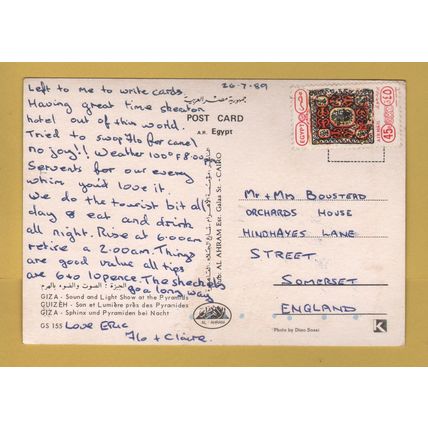 26-7-89
Left to me to write cards.
Having great time sheraton
hotel out of this world.
Tried to swop Flo for camel
no joy!! Weather 100°F 8.00am
Servents for our every
whim you'd love it.
We do the tourist bit all
day & eat and drink
all night. Rise at 6:00am
retire 2:00am. Things
are good value all tips
are 6 to 10 pence. The sheckles
go a long way
Love Eric
Flo + Claire.
جمهورية مصر العربية
POST CARD
A.R. Egypt
EGYPT مصر
45
AL AHRAM Est. Galaa St. - CAIRO
Mr + Mrs BOUSTEAD
ORCHARDS HOUSE
HINDHAYES LANE
STREET
SOMERSET
ENGLAND
الجيزة : الصوت والضوء بالهرم
GIZA - Sound and Light Show at the Pyramids
GUIZEH - Son et Lumière près des Pyramides
GIZA - Sphinx und Pyramiden bei Nacht
GS 155
AL - AHRAM
Photo by Dino Sassi
K